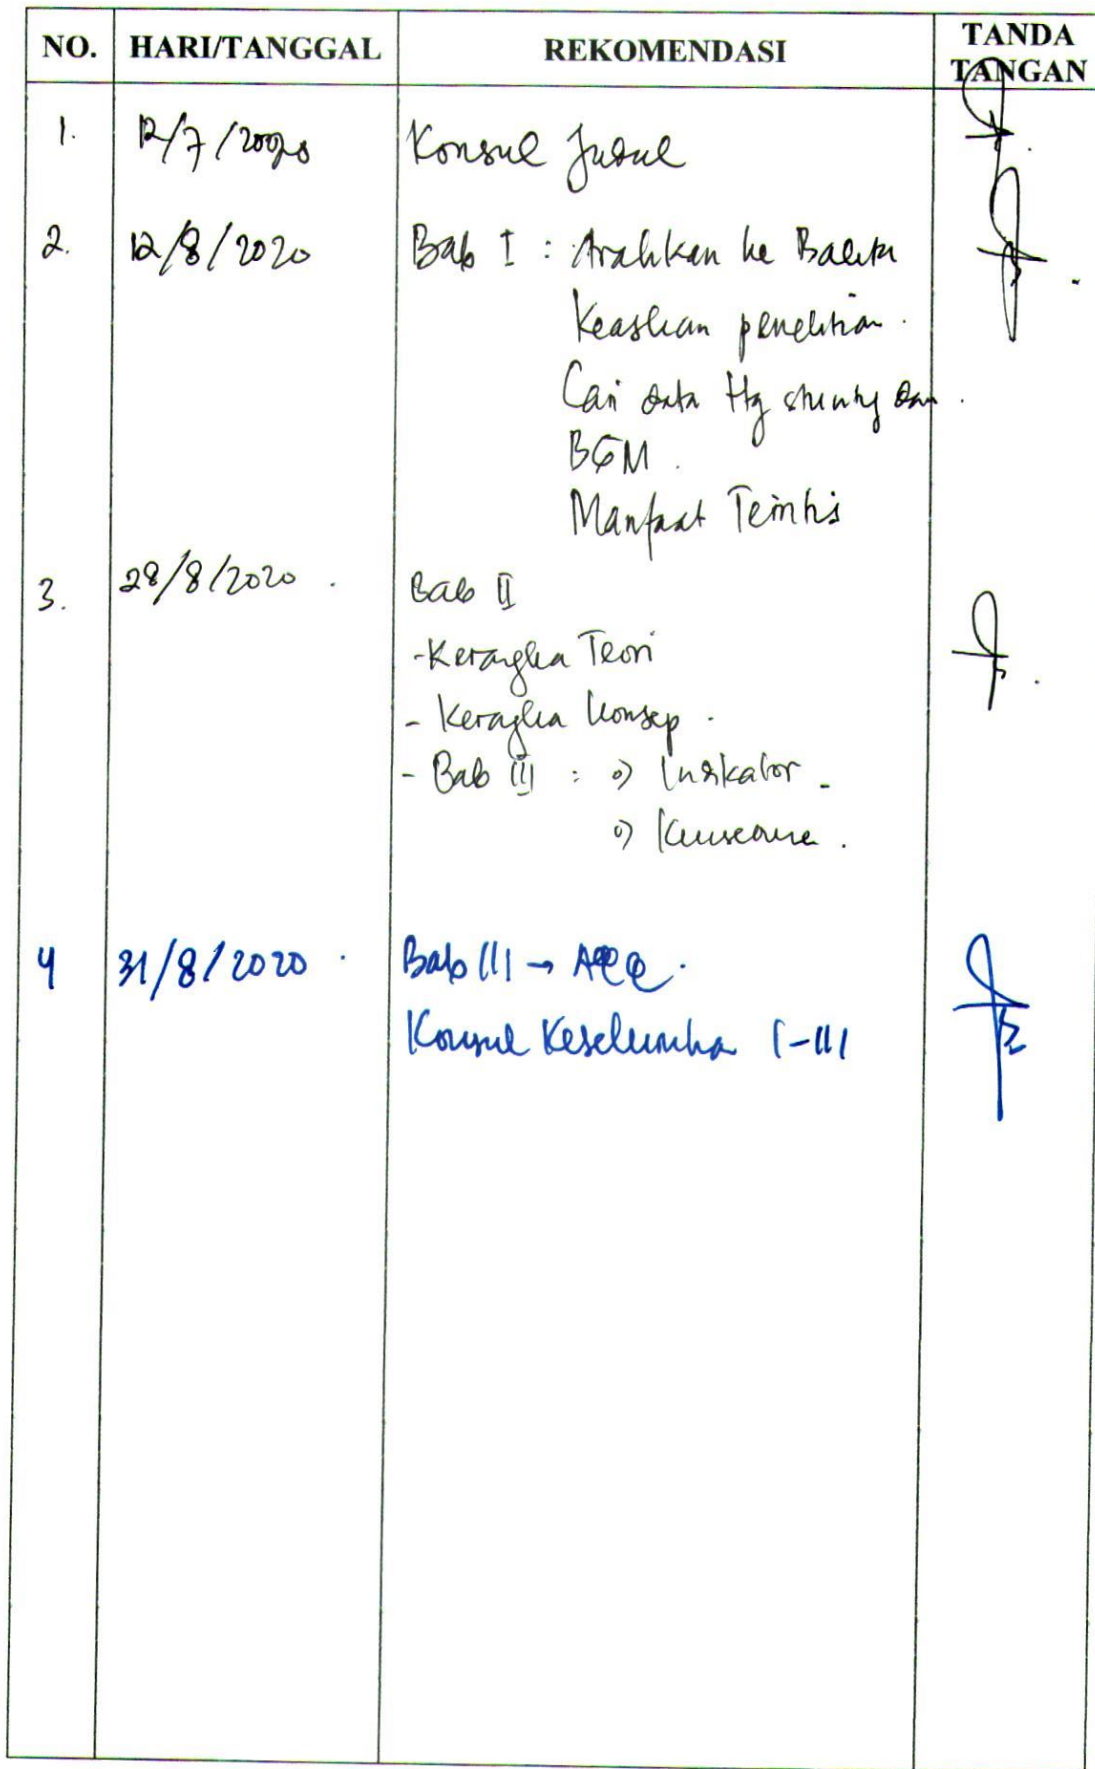 NO. HARI/TANGGAL REKOMENDASI TANDA TANGAN
1. 12/7/2020 Konsul Judul
2. 12/8/2020 Bab I : Arahkan ke Balita
Keaslian penelitian.
Cari data ttg stunting dan
BGM.
Manfaat Teoritis
3. 28/8/2020. Bab II
- Kerangka Teori
- Kerangka Konsep.
- Bab III : o) Indikator -
o) Kuisioner.
4 31/8/2020. Bab III → ACC.
Konsul Keseluruhan I-III